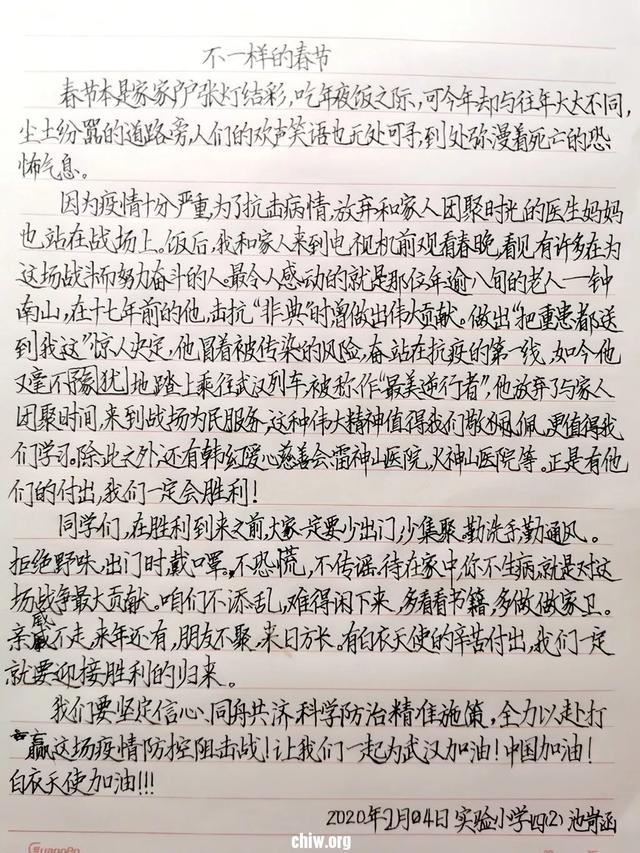 不一样的春节
春节本是家家户户张灯结彩,吃年夜饭之际,可今年却与往年大大不同,
尘土纷嚣的道路旁,人们的欢声笑语也无处可寻,到处弥漫着死亡的恐
怖气息。
因为疫情十分严重,为了抗击病情,放弃和家人团聚时光的医生妈妈
也站在战场上。饭后,我和家人来到电视机前观看春晚,看见有许多在为
这场战斗而努力奋斗的人。最令人感动的就是那位年逾八旬的老人一钟
南山,在十七年前的他,击抗“非典”时曾做出伟大贡献。做出“把重患都送
到我这”惊人决定,他冒着被传染的风险,奋站在抗疫的第一线,如今他
又毫不豫犹地踏上乘往武汉列车,被称作“最美逆行者”,他放弃了与家人
团聚时间,来到战场为民服务,这种伟大精神值得我们敬佩,更值得我
们学习。除此之外,还有韩红爱心慈善会、雷神山医院,火神山医院等。正是有他
们的付出,我们一定会胜利!
同学们,在胜利到来之前,大家一定要少出门,少集聚,勤洗手,勤通风。
拒绝野味,出门时戴口罩。不恐慌,不传谣,待在家中,你不生病,就是对这
场战争最大贡献。咱们不添乱,难得闲下来,多看看书籍,多做做家卫。
亲戚不走,来年还有,朋友不聚,来日方长。有白衣天使的辛苦付出,我们一定
就要迎接胜利的归来。
我们要坚定信心、同舟共济、科学防治、精准施策,全力以赴打
赢这场疫情防控阻击战!让我们一起为武汉加油!中国加油!
白衣天使加油!!!
2020年2月04日 实验小学四(2) 池岢函
GuangBo
chiw.org